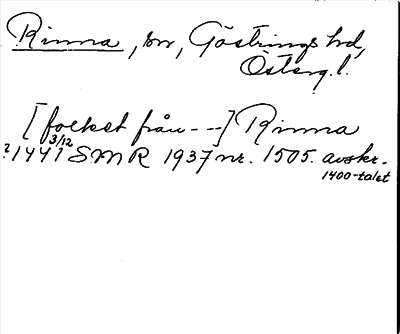 Rinna, sn, Göstrings hd,
Österg. l.
[folket från - - -] Rinna
? 1441 3/12 SMR 1937 nr. 1505. avskr.
1400-talet